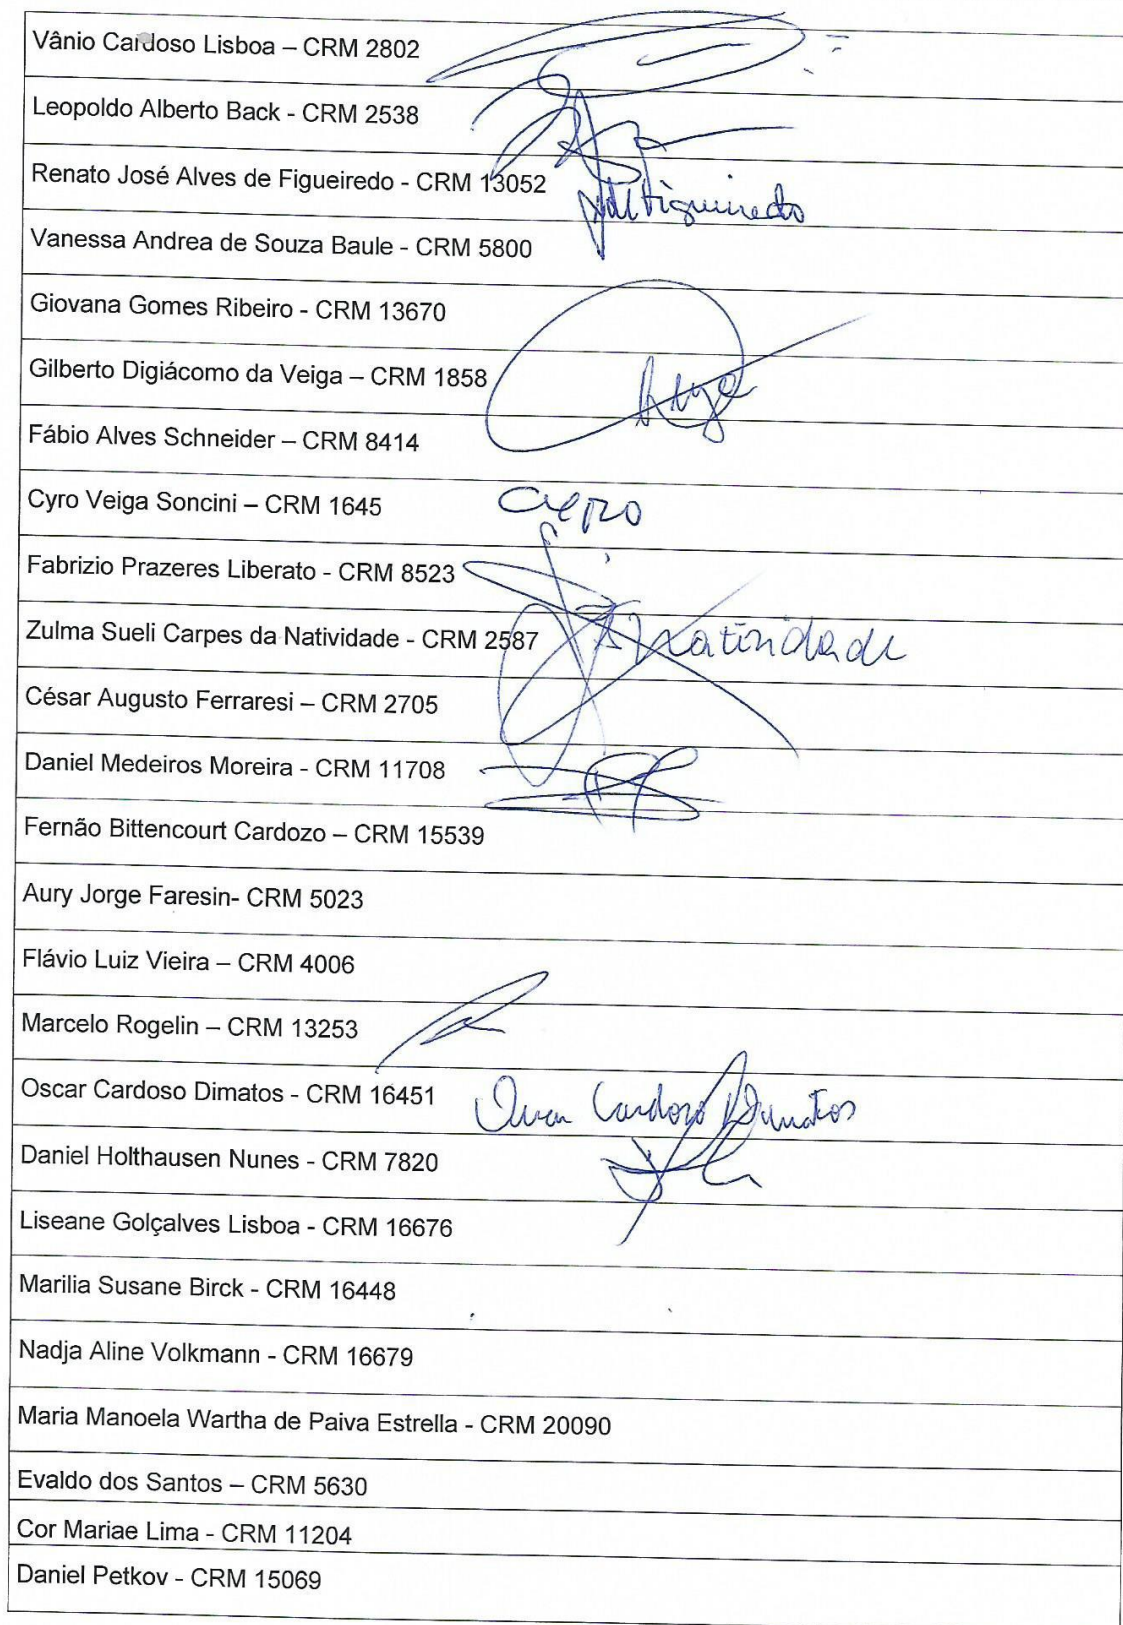 Vânio Cardoso Lisboa – CRM 2802
Leopoldo Alberto Back - CRM 2538
Renato José Alves de Figueiredo - CRM 13052
Figueiredo
Vanessa Andrea de Souza Baule - CRM 5800
Giovana Gomes Ribeiro - CRM 13670
Gilberto Digiácomo da Veiga – CRM 1858
Fábio Alves Schneider – CRM 8414
Cyro Veiga Soncini – CRM 1645
Fabrizio Prazeres Liberato - CRM 8523
Zulma Sueli Carpes da Natividade - CRM 2587 Natividade
César Augusto Ferraresi – CRM 2705
Daniel Medeiros Moreira - CRM 11708
Fernão Bittencourt Cardozo – CRM 15539
Aury Jorge Faresin- CRM 5023
Flávio Luiz Vieira – CRM 4006
Marcelo Rogelin – CRM 13253
Oscar Cardoso Dimatos - CRM 16451 Oscar Cardoso Dimatos
Daniel Holthausen Nunes - CRM 7820
Liseane Golçalves Lisboa - CRM 16676
Marilia Susane Birck - CRM 16448
Nadja Aline Volkmann - CRM 16679
Maria Manoela Wartha de Paiva Estrella - CRM 20090
Evaldo dos Santos – CRM 5630
Cor Mariae Lima - CRM 11204
Daniel Petkov - CRM 15069